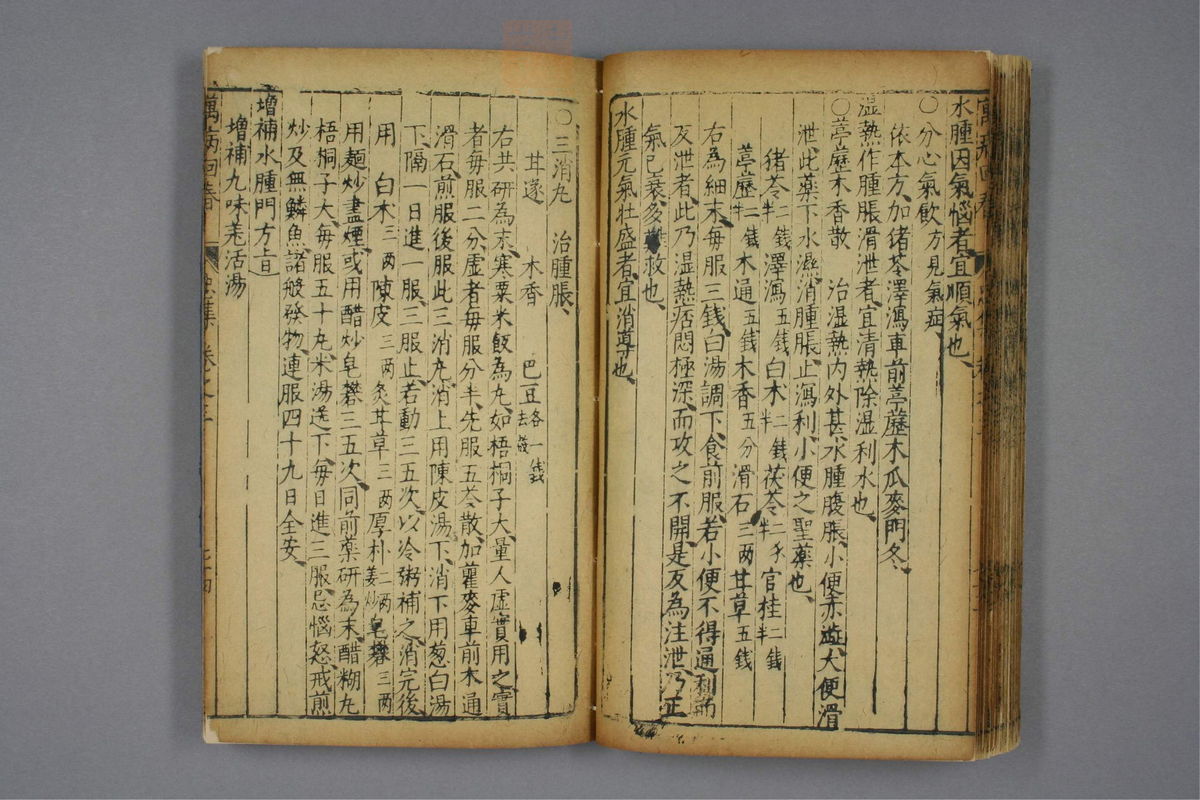 水腫因氣惱者宜順氣也
○分心氣飲方見氣症
依本方加猪苓澤瀉車前葶藶木瓜麥門冬
湿熱作腫脹滑泄者宜清熱除湿利水也
○葶藶木香散　治湿熱内外甚水腫腹脹小便赤澁大便滑
泄此藥下水濕消腫脹止瀉利小便之聖藥也
猪苓二錢半 澤瀉五錢 白木二錢半 茯苓二錢半 官桂二錢半
葶藶二錢半 木通五錢 木香五分 滑石三两 甘草五錢
右為細末每服三錢白湯調下食前服若小便不得通利而
反泄者此乃湿熱痞悶極深而攻之不開是反為注泄乃正
氣已衰多難救也
水腫元氣壯盛者宜消導也
○三消丸　治腫脹
甘遂　木香　巴豆去殼 各一錢
右共研為末寒粟米飯為丸如梧桐子大量人虛實用之實
者每服二分虛者每服分半先服五苓散加瞿麥車前木通
滑石煎服後服此三消丸消上用陳皮湯下消下用葱白湯
下隔一日進一服三服止若動三五次以冷粥補之消完後
用　白术三两 陳皮三两 炙甘草三两 厚朴二两姜炒 皂礬三两
用麺炒盡煙或用醋炒皂礬三五次同前藥研為末醋糊丸
梧桐子大每服五十丸米湯送下每日進三服忌惱怒戒煎
炒及無鱗魚諸般發物連服四十九日全安
增補水腫門方旨
增補九味羌活湯
萬病回春